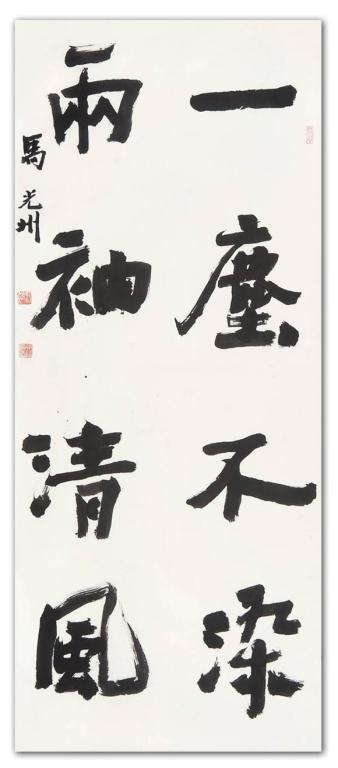 一塵不染
兩袖清風
馬光州